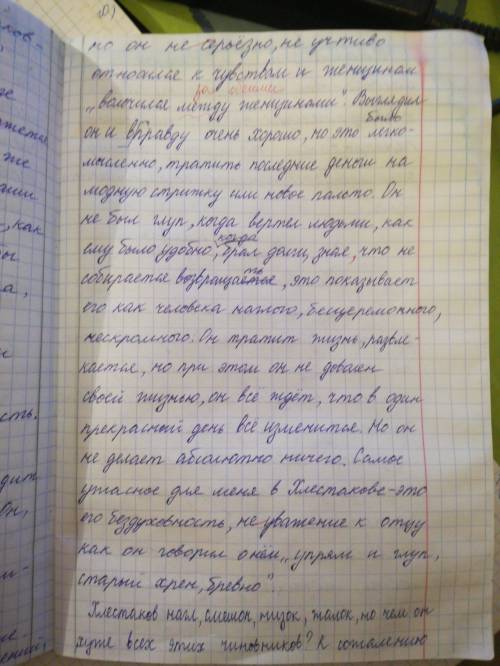 но он не серьёзно, не учтиво
относился к чувствам и женщинам
„волочился между женщинами". Выглядил
он и вправду очень хорошо, но это было легко-
мысленно, тратить последние деньги на
модную стрижку или новое пальто. Он
не был глуп, когда вертел людьми, как
ему было удобно, когда брал долги, зная, что не
собирается возвращать, это показывает
его как человека наглого, бесцеремонного,
нескромного. Он тратит жизнь, развле-
кается, но при этом он не доволен
своей жизнью, он всё ждёт, что в один
прекрасный день всё изменится. Но он
не делает абсолютно ничего. Самое
ужасное для меня в Хлестакове - это
его бездуховность, не уважение к отцу
как он говорил о нём „упрям и глуп,
старый хрен, бревно".
Хлестаков нагл, смешон, низок, жалок, но чем он
хуже всех этих чиновников? К сожалению